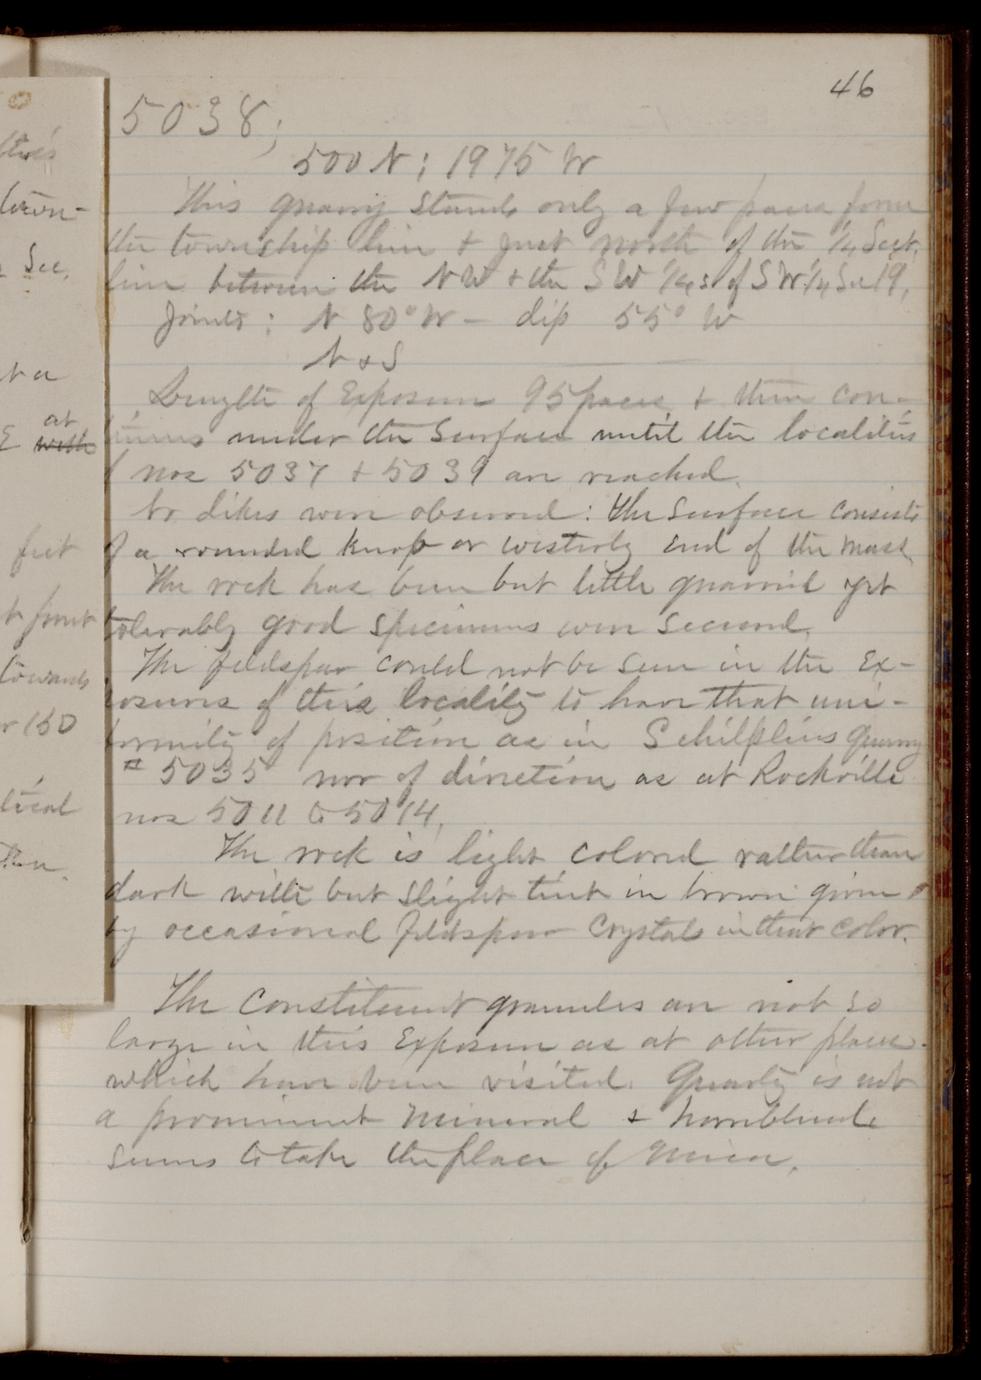 46
5038;
500 N; 1975 W
This quarry stands only a few paces from
the township line + just north of the 1/4 Sect.
line between the NW + the SW 1/4s of SW 1/4 Sec 19,
Joints: N 80° W - dip 55° W
N & S
Length of Exposure 95 paces + then con-
tinues under the Surface until the localities
of nos 5037 + 5039 are reached.
No dikes were observed: the Surface consists
of a rounded knob or westerly end of the mass
The rock has been but little quarried yet
tolerably good specimens were secured.
The feldspar could not be seen in the Ex-
posures of this locality to have that uni-
formity of position as in Schilplins quarry
# 5035 nor of direction as at Rockville
nos 5011 to 5014,
The rock is light colored rather than
dark with but slight tint in brown given
by occasional feldspar Crystals in that color.
The Constituent granules are not so
large in this Exposure as at other places
which have been visited. Quartz is not
a prominent mineral & hornblende
seems to take the place of mica.
town-
Sec.
at
E with
feet
t front
towards
r 150